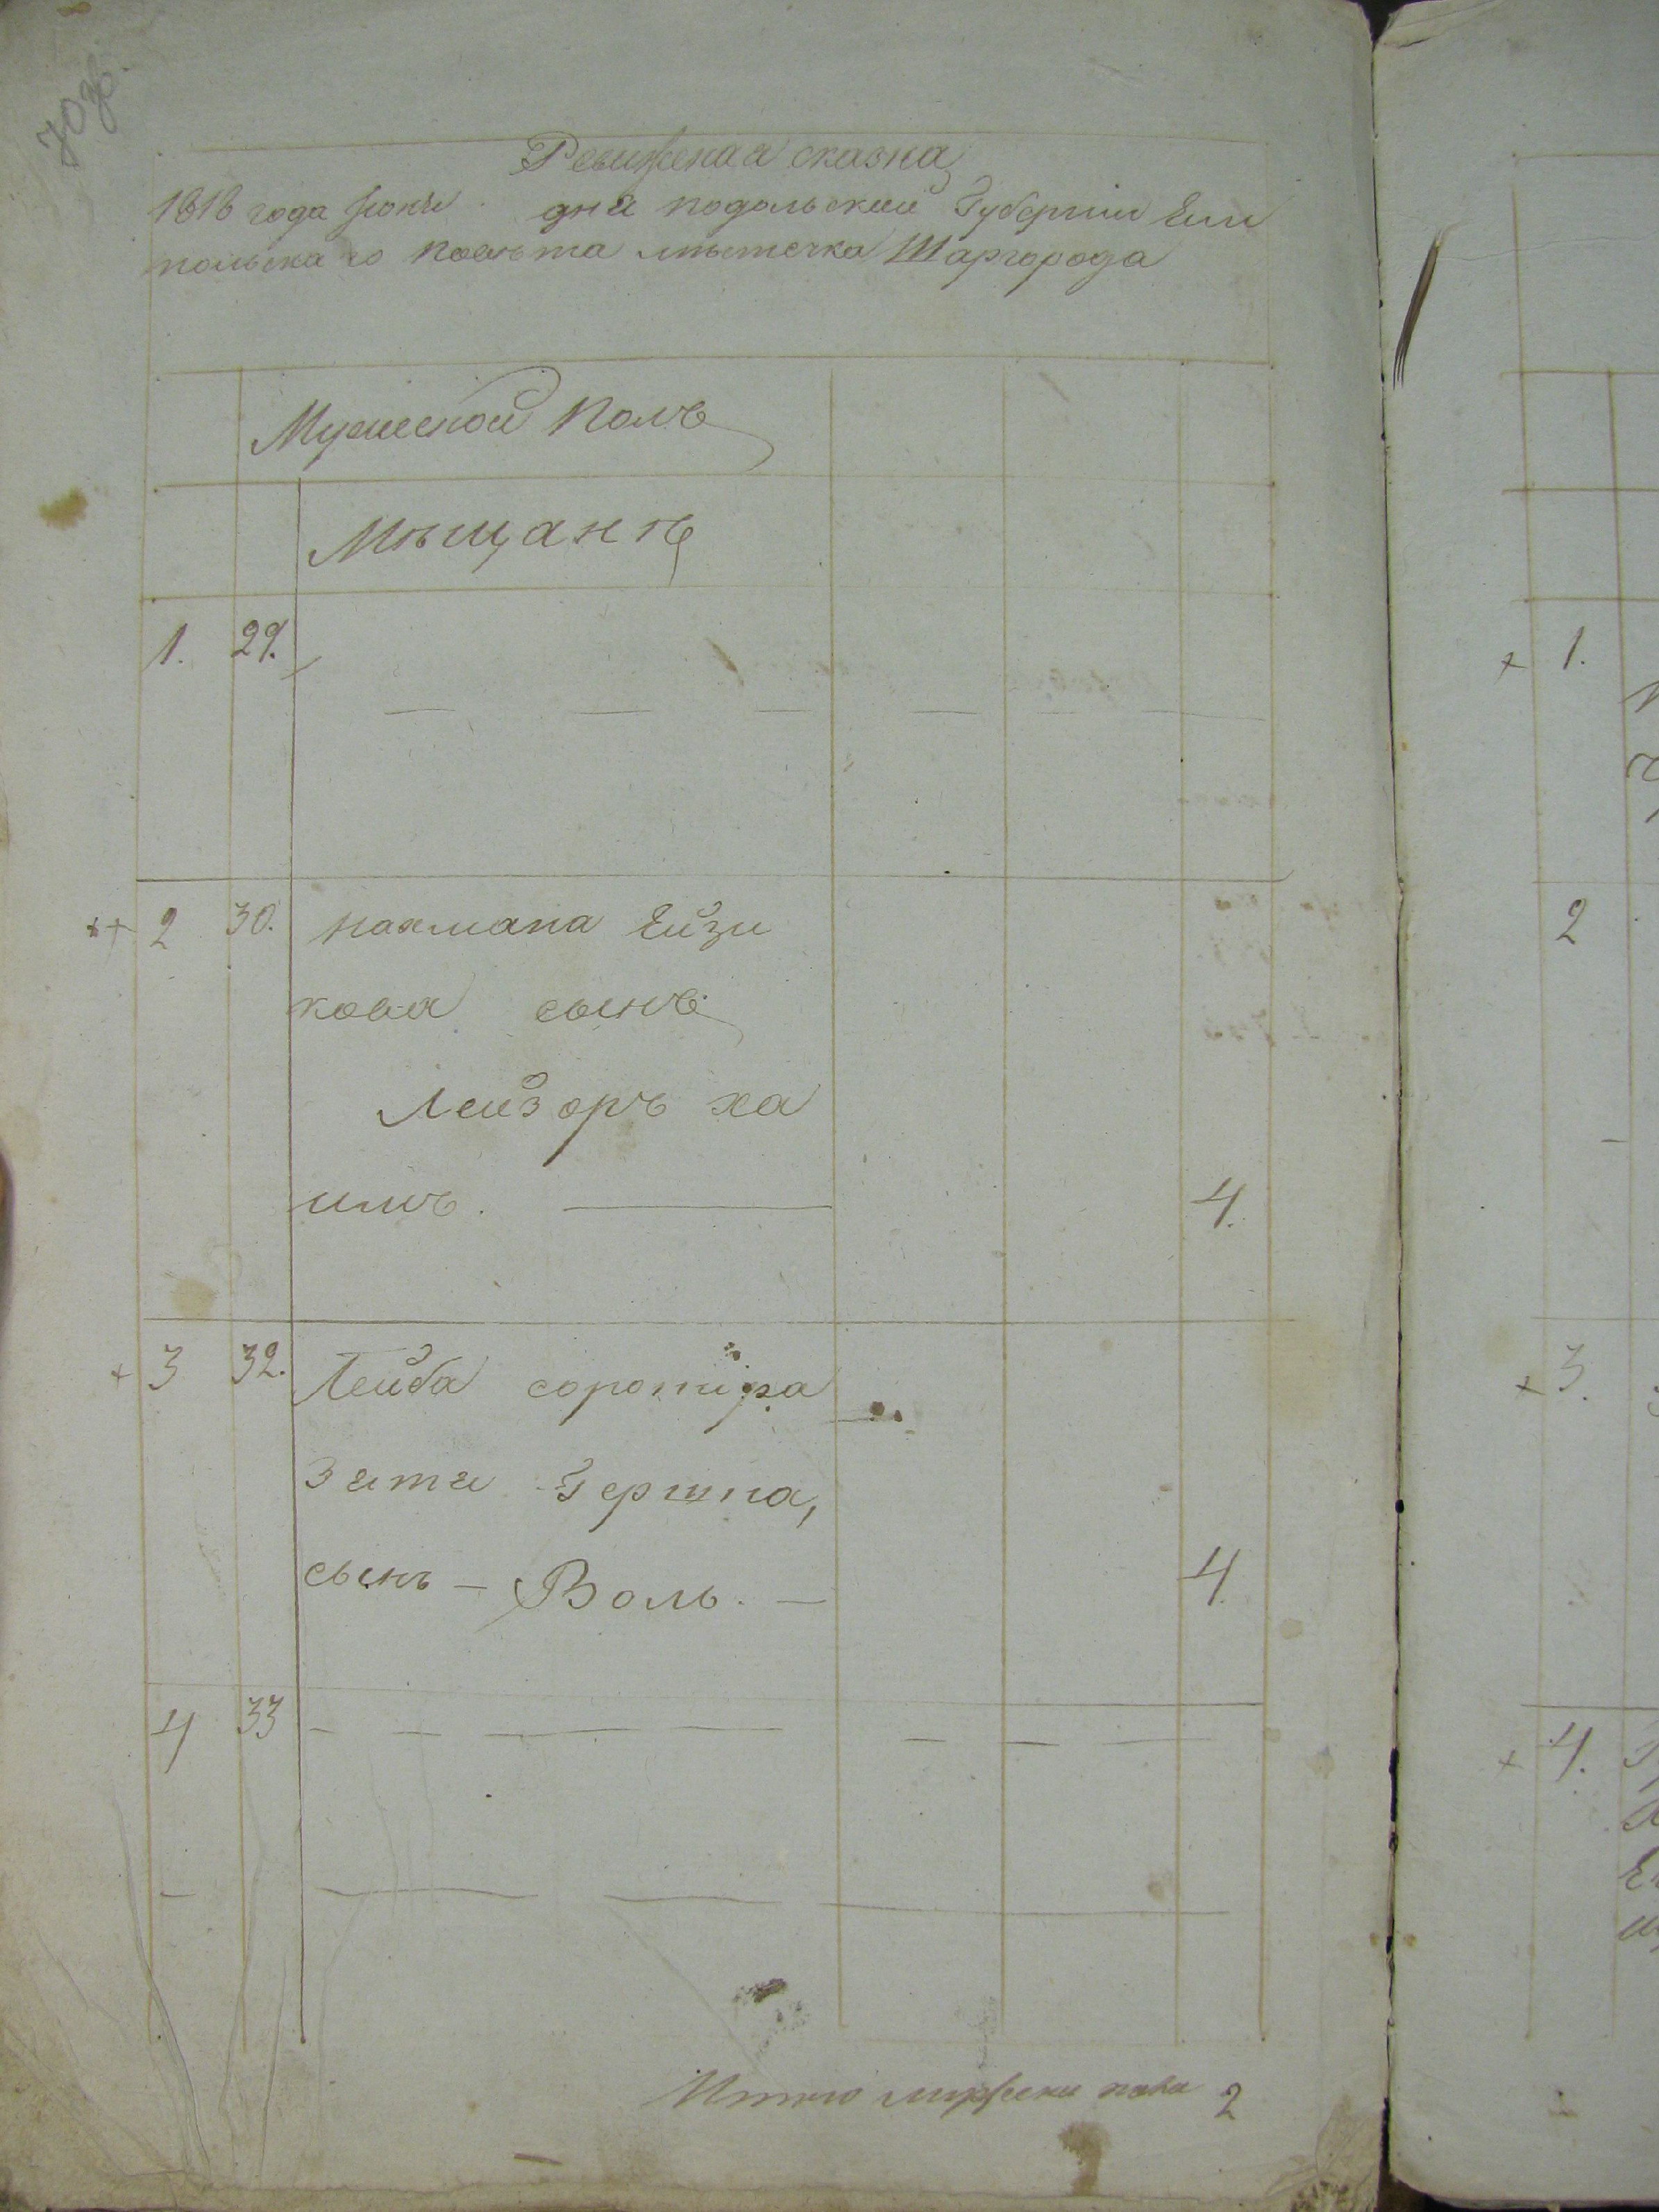 70 зв.
Ревижская сказка
1818 года Июня дня подольский Губернии Ем
польска го повѣта мѣстечка Шаргорода
Мужеской Полъ
Мѣщанѣ
1. 29.
2 30. нахмана Ейзи
кова сынъ
Лейзоръ ха
имъ. 4.
3 32. Лейба
Зятя Гершка,
сынъ — Воль. — 4.
4 33
Итого мужска пола 2
1.
2
3.
4.